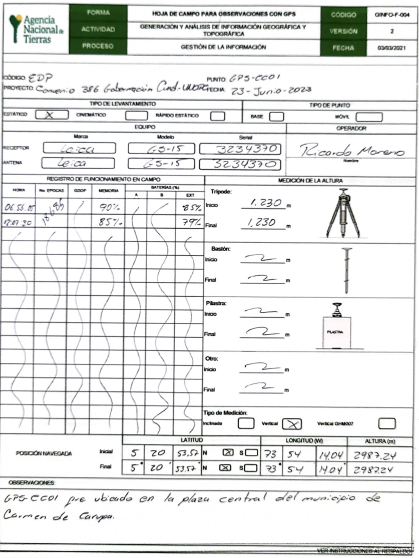 Agencia Nacional de Tierras
FORMA HOJA DE CAMPO PARA OBSERVACIONES CON GPS CÓDIGO GINFO-F-004
ACTIVIDAD GENERACIÓN Y ANÁLISIS DE INFORMACIÓN GEOGRÁFICA Y TOPOGRÁFICA VERSIÓN 2
PROCESO GESTIÓN DE LA INFORMACIÓN FECHA 03/03/2021
CÓDIGO: EDP PUNTO GPS-CC01
PROYECTO: Convenio 386 Gobernación Cund-UNOR FECHA 23-Junio-2023
TIPO DE LEVANTAMIENTO TIPO DE PUNTO
ESTÁTICO X CINEMÁTICO RÁPIDO ESTÁTICO BASE MÓVIL
EQUIPO OPERADOR
Marca Modelo Serial
RECEPTOR Leica GS-15 3234370 Ricardo Moreno
ANTENA Leica GS-15 3234370 Nombre
REGISTRO DE FUNCIONAMIENTO EN CAMPO MEDICIÓN DE LA ALTURA
HORA No. EPOCAS GDOP MEMORIA BATERÍAS (%) A B EXT
Trípode:
90% 85% Inicio 1,230 m
85% 79% Final 1,230 m
Bastón:
Inicio m
Final m
Pilastra:
Inicio m
Final m
PILASTRA
Otro:
Inicio m
Final m
Tipo de Medición:
Inclinada Vertical X Vertical GHM007
LATITUD LONGITUD (W) ALTURA (m)
POSICIÓN NAVEGADA Inicial 5 20 53,57 N X S 73 54 14,04 2987,24
Final 5° 20' 53.57" N X S 73° 54' 14.04" 2987.24
OBSERVACIONES
GPS-CC01 fue ubicado en la plaza central del municipio de
Carmen de Carupa.
VER INSTRUCCIONES AL RESPALDO